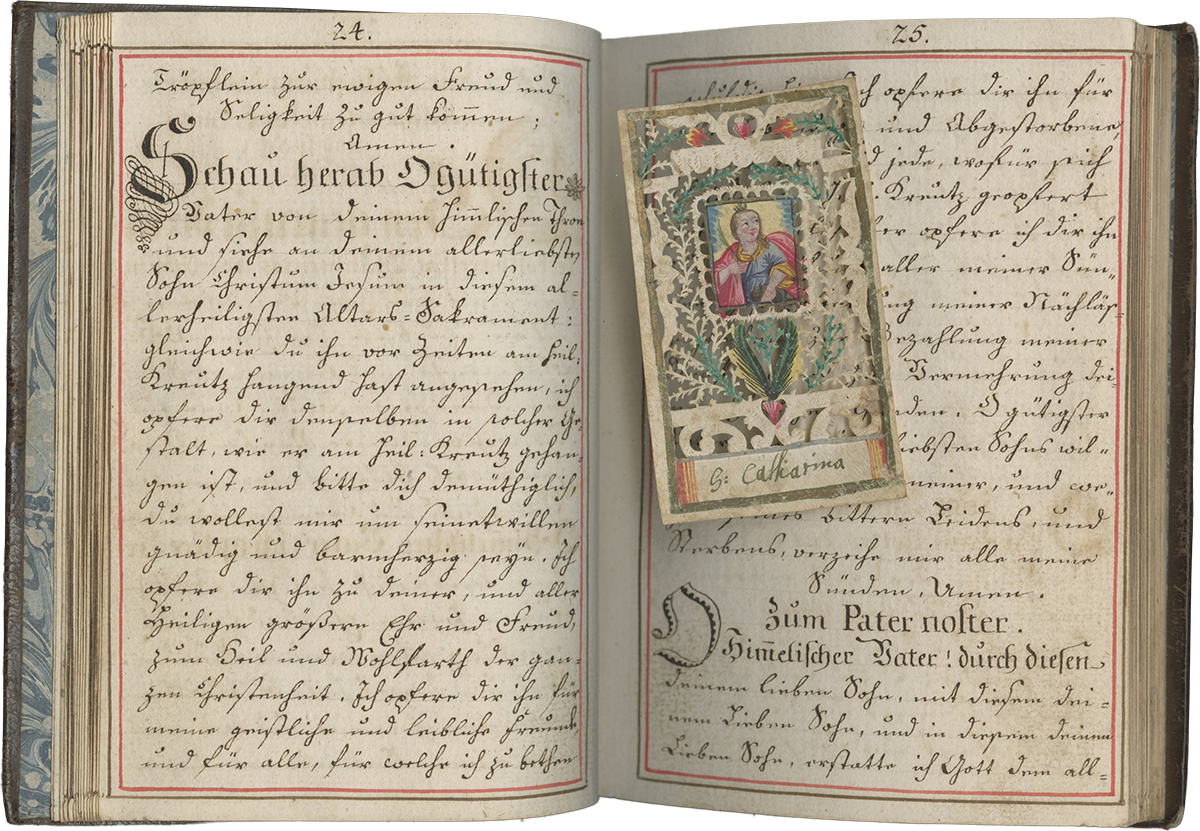 24.
Tröpflein zur ewigen Freud und
Seligkeit zu gut kom̄en;
Amen.
Schau herab O gütigster
Vater von deinem him̄lischen Thron
und siehe an deinem allerliebsten
Sohn Christum Jesum in diesem al=
lerheiligsten Altars=Sakrament:
gleichwie du ihn vor Zeiten am heil:
Kreutz hangend hast angesehen, ich
opfere dir denselben in solcher Ge=
stalt, wie er am heil: Kreutz gehan=
gen ist, und bitte dich demüthiglich,
du wollest mir um seinetwillen
gnädig und barmherzig seyn. Ich
opfere dir ihn zu deiner, und aller
Heiligen größern Ehr und Freud,
zum Heil und Wohlfarth der gan=
zen Christenheit. Ich opfere dir ihn für
meine geistliche und leibliche Freunde,
und für alle, für welche ich zu bethen
25.
opfere dir ihn für
und Abgestorbene,
jede, wofür sich
Kreutz geopfert
opfere ich dir ihn
aller meiner Sün=
meiner Nachläs=
Bezahlung meiner
Vermehrung dei=
O gütigster
liebsten Sohns wil=
meiner, und we=
bittern Leidens, und
Sterbens, verzeihe mir alle meine
Sünden, Amen.
Zum Pater noster.
O Him̄elischer Vater! durch diesen
deinem lieben Sohn, mit diesem dei=
nem Lieben Sohn, und in diesem deinem
Lieben Sohn, erstatte ich Gott dem all=
S: Catharina